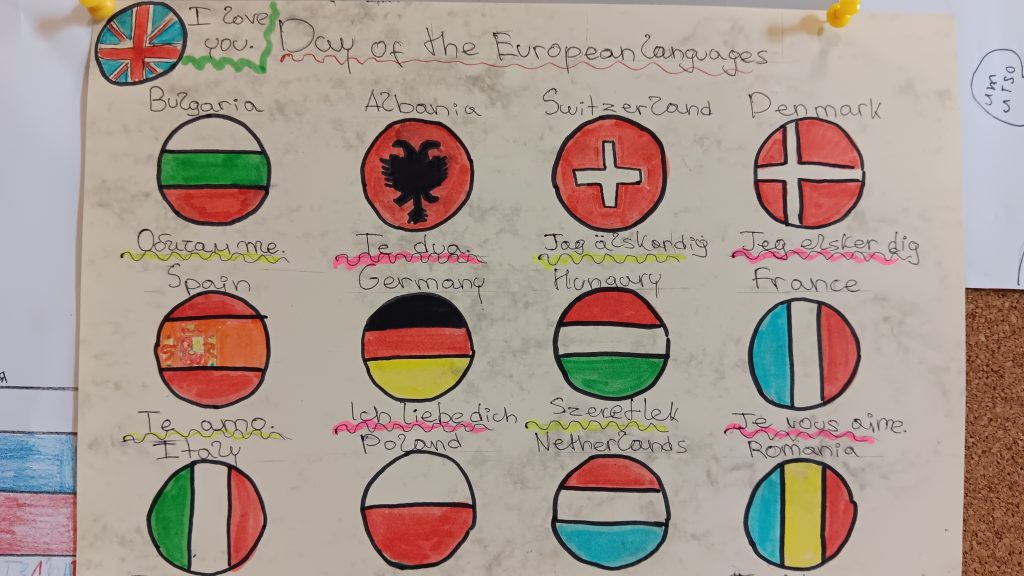 I love
you.
Day of the European languages
Bulgaria Albania Switzerland Denmark
Обичам те. Te dua. Jag älskardig Jeg elsker dig
Spain Germany Hungary France
Te amo. Ich liebe dich Szeretlek Je vous aime.
Italy Poland Netherlands Romania